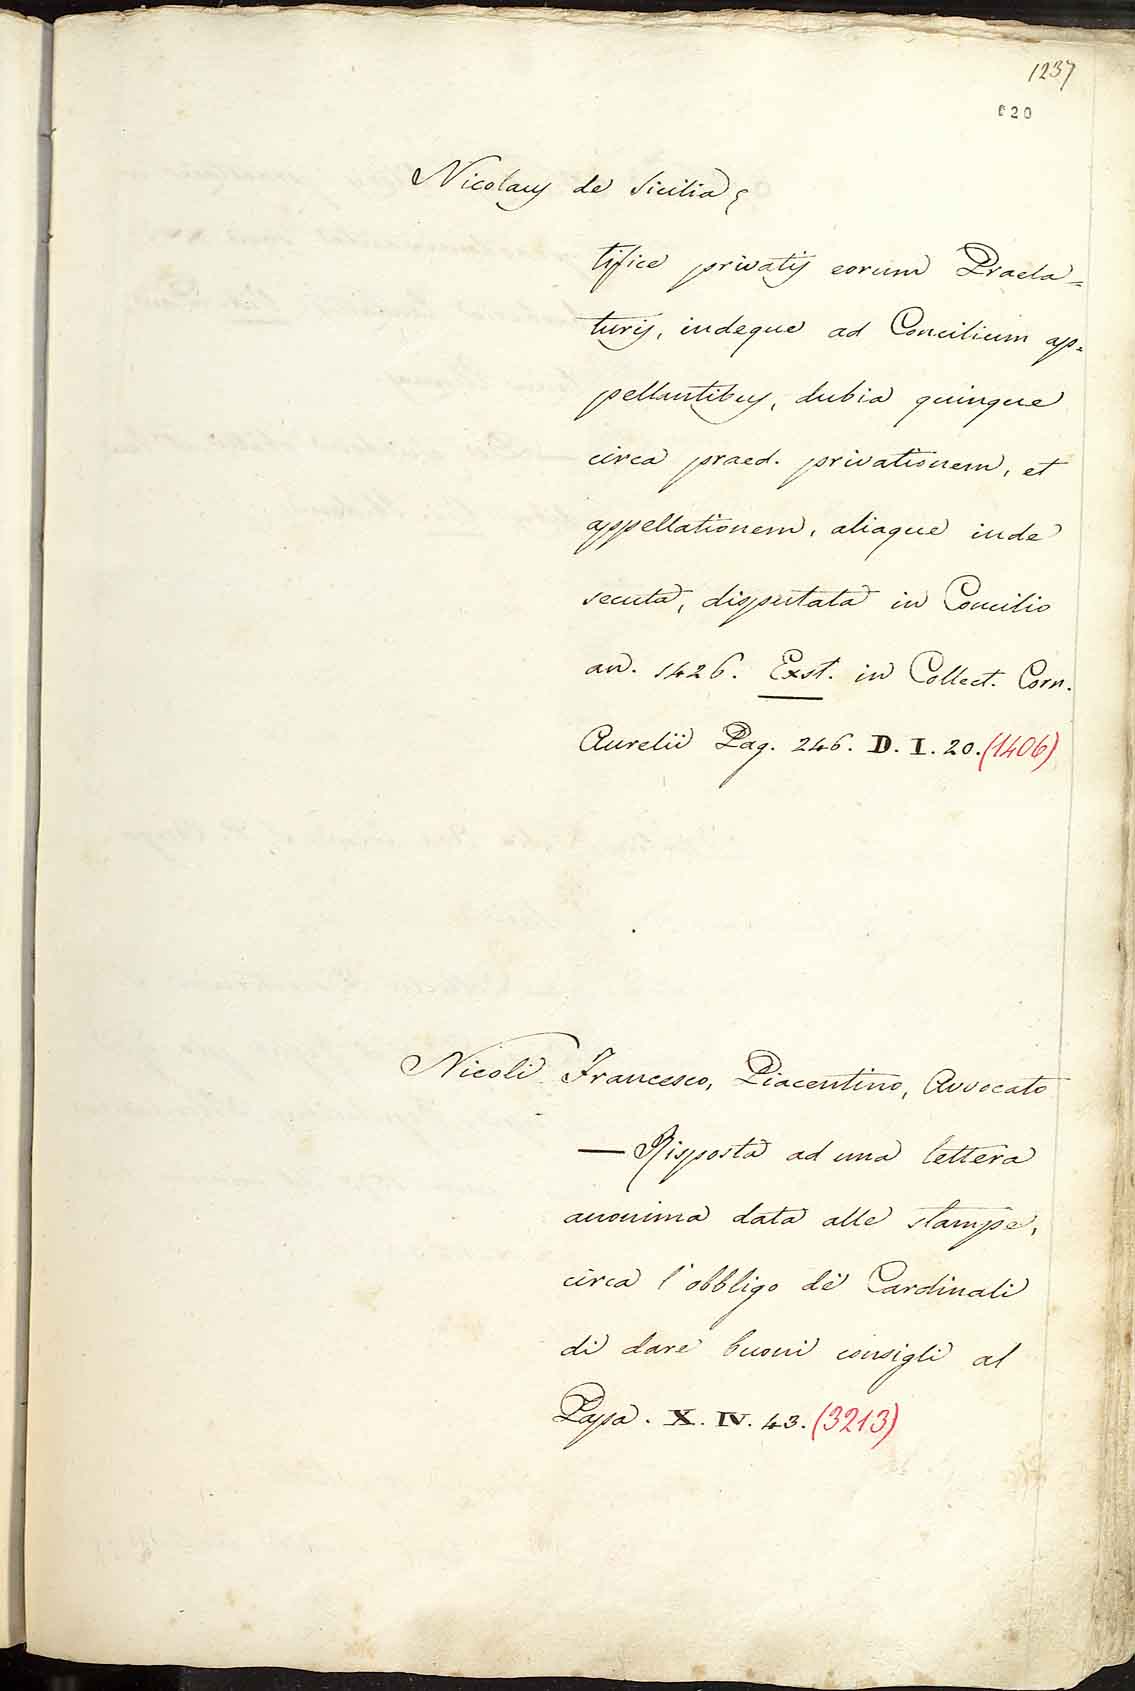 1237
620
Nicolaus de Sicilia,
tifice privatis eorum Praela=
turis, indeque ad Concilium ap=
pellantibus, dubia quinque
circa praed. privationem, et
appellationem, aliaque inde
secuta, disputata in Concilio
an. 1426. Exst. in Collect. Corn.
Aurelii Pag. 246. D. I. 20. (1406)
Nicoli Francesco, Piacentino, Avvocato
— Risposta ad una lettera
anonima data alle stampe,
circa l'obbligo de' Cardinali
di dare buoni consigli al
Papa. X. IV. 43. (3213)